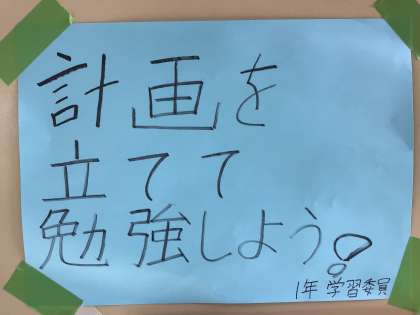 計画を
立てて
勉強しよう!
1年 学習委員